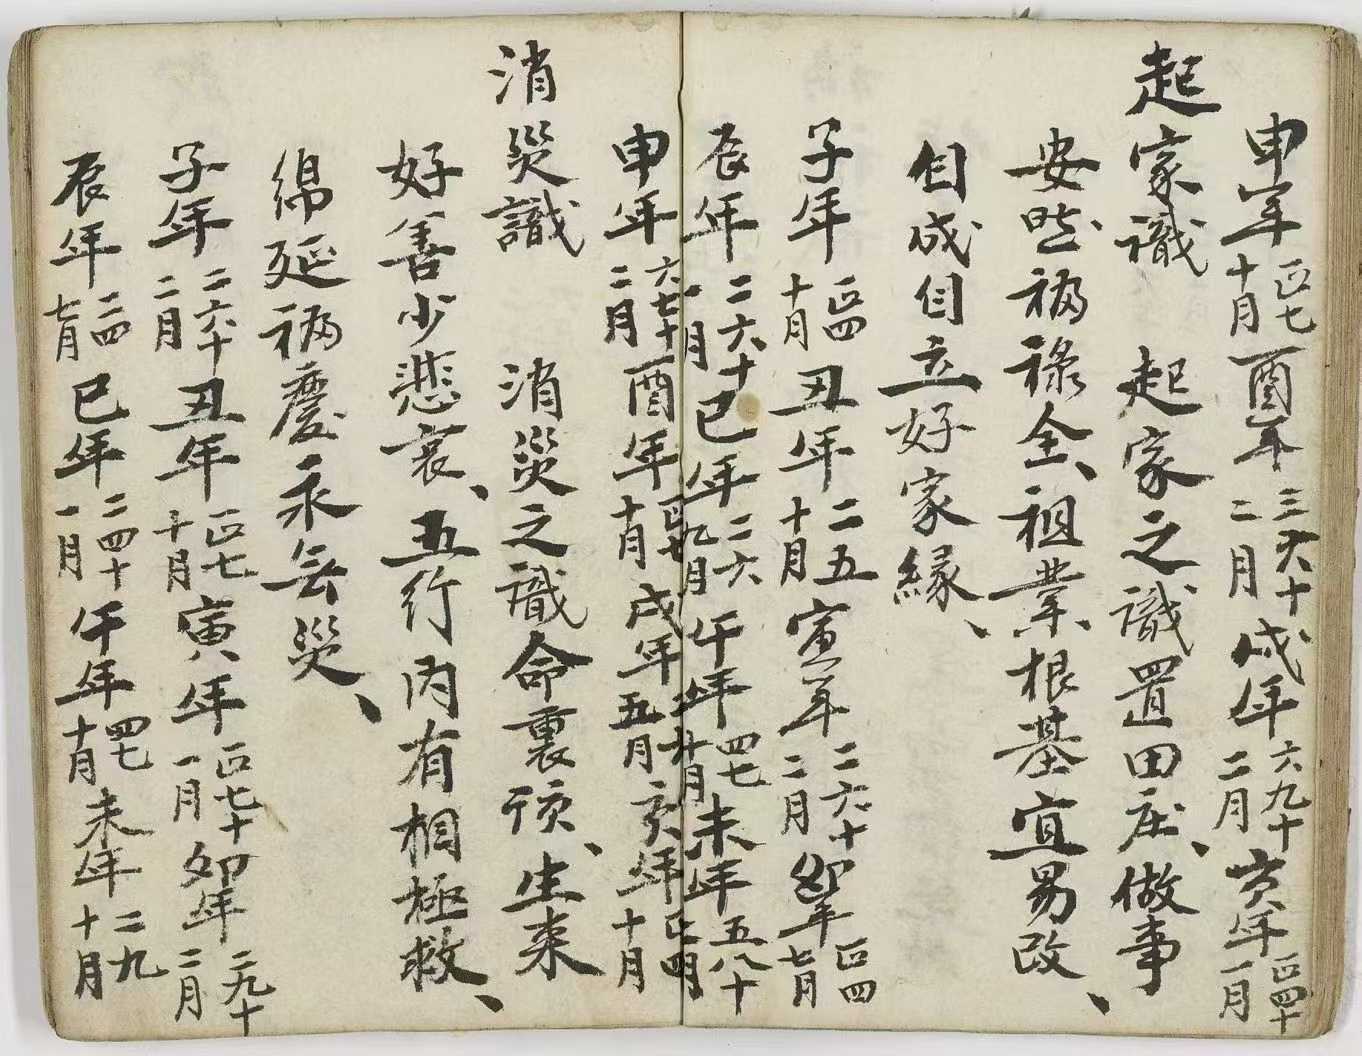 申年正七十月酉年三六十二月戌年六九十二月亥年正四十一月
起家識 起家之識置田庄、做事
安然福祿全、祖業根基宜易改、
自成自立好家緣、
子年正四十月丑年二五十月寅年二六十二月卯年正四七月
辰年二六十一月巳年二六九月午年四七十月未年五八十
申年六七十二月酉年正七十月戌年五月亥年正四十月
消災識 消災之識命裏頂、生來
好善少悲哀、五行內有相極救、
綿延福慶永無災、
子年二六十二月丑年正七十月寅年正七十一月卯年二九十二月
辰年二四七月巳年二四十一月午年四七十月未年二九十月